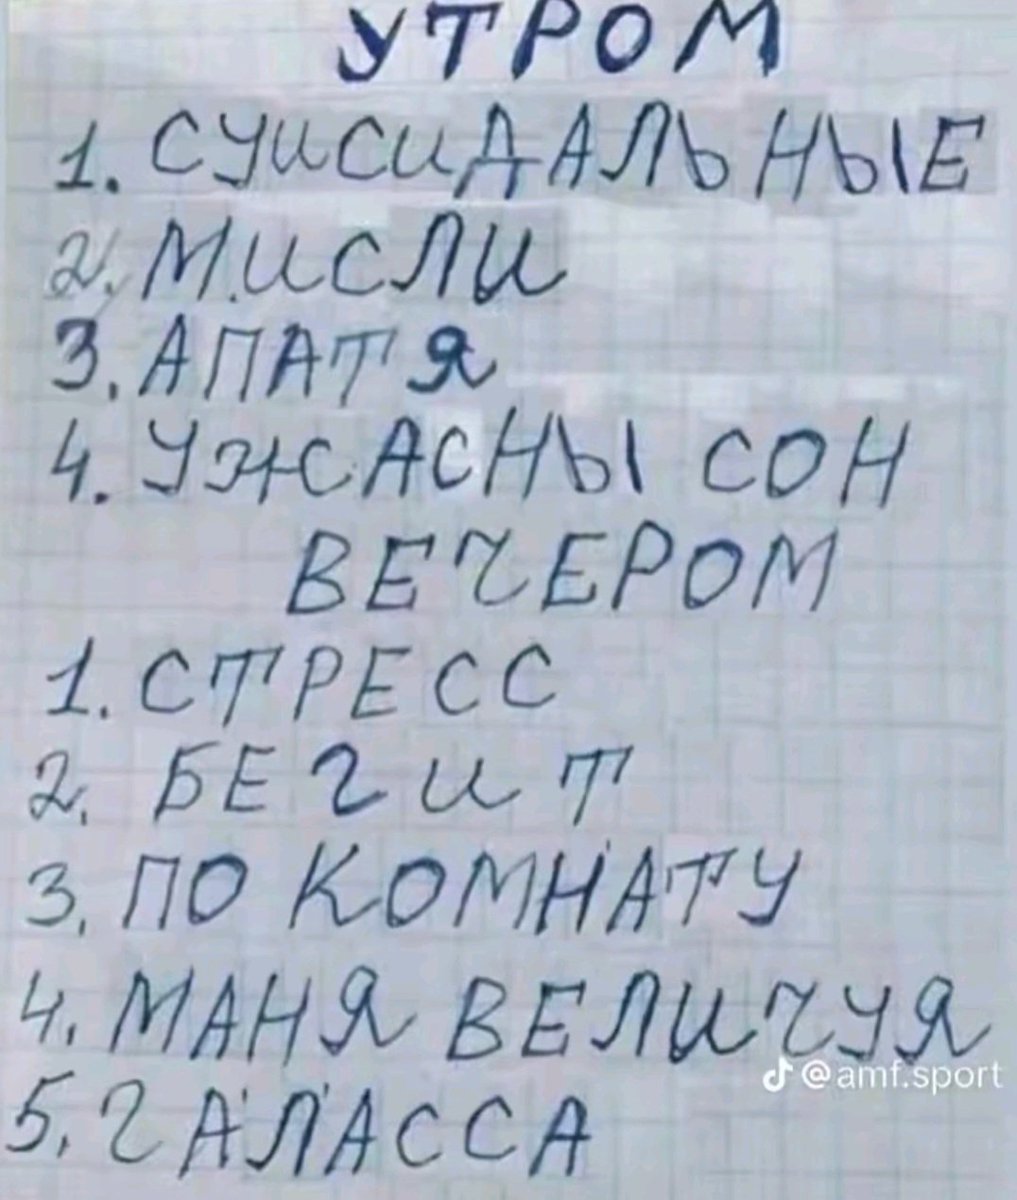 УТРОМ
1. СУИСИДАЛЬНЫЕ
2. МИСЛИ
3. АПАТЯ
4. УЖАСНЫ СОН
ВЕЧЕРОМ
1. СТРЕСС
2. БЕГИТ
3. ПО КОМНАТУ
4. МАНЯ ВЕЛИЧУЯ
@amf.sport
5. ГАЛАССА